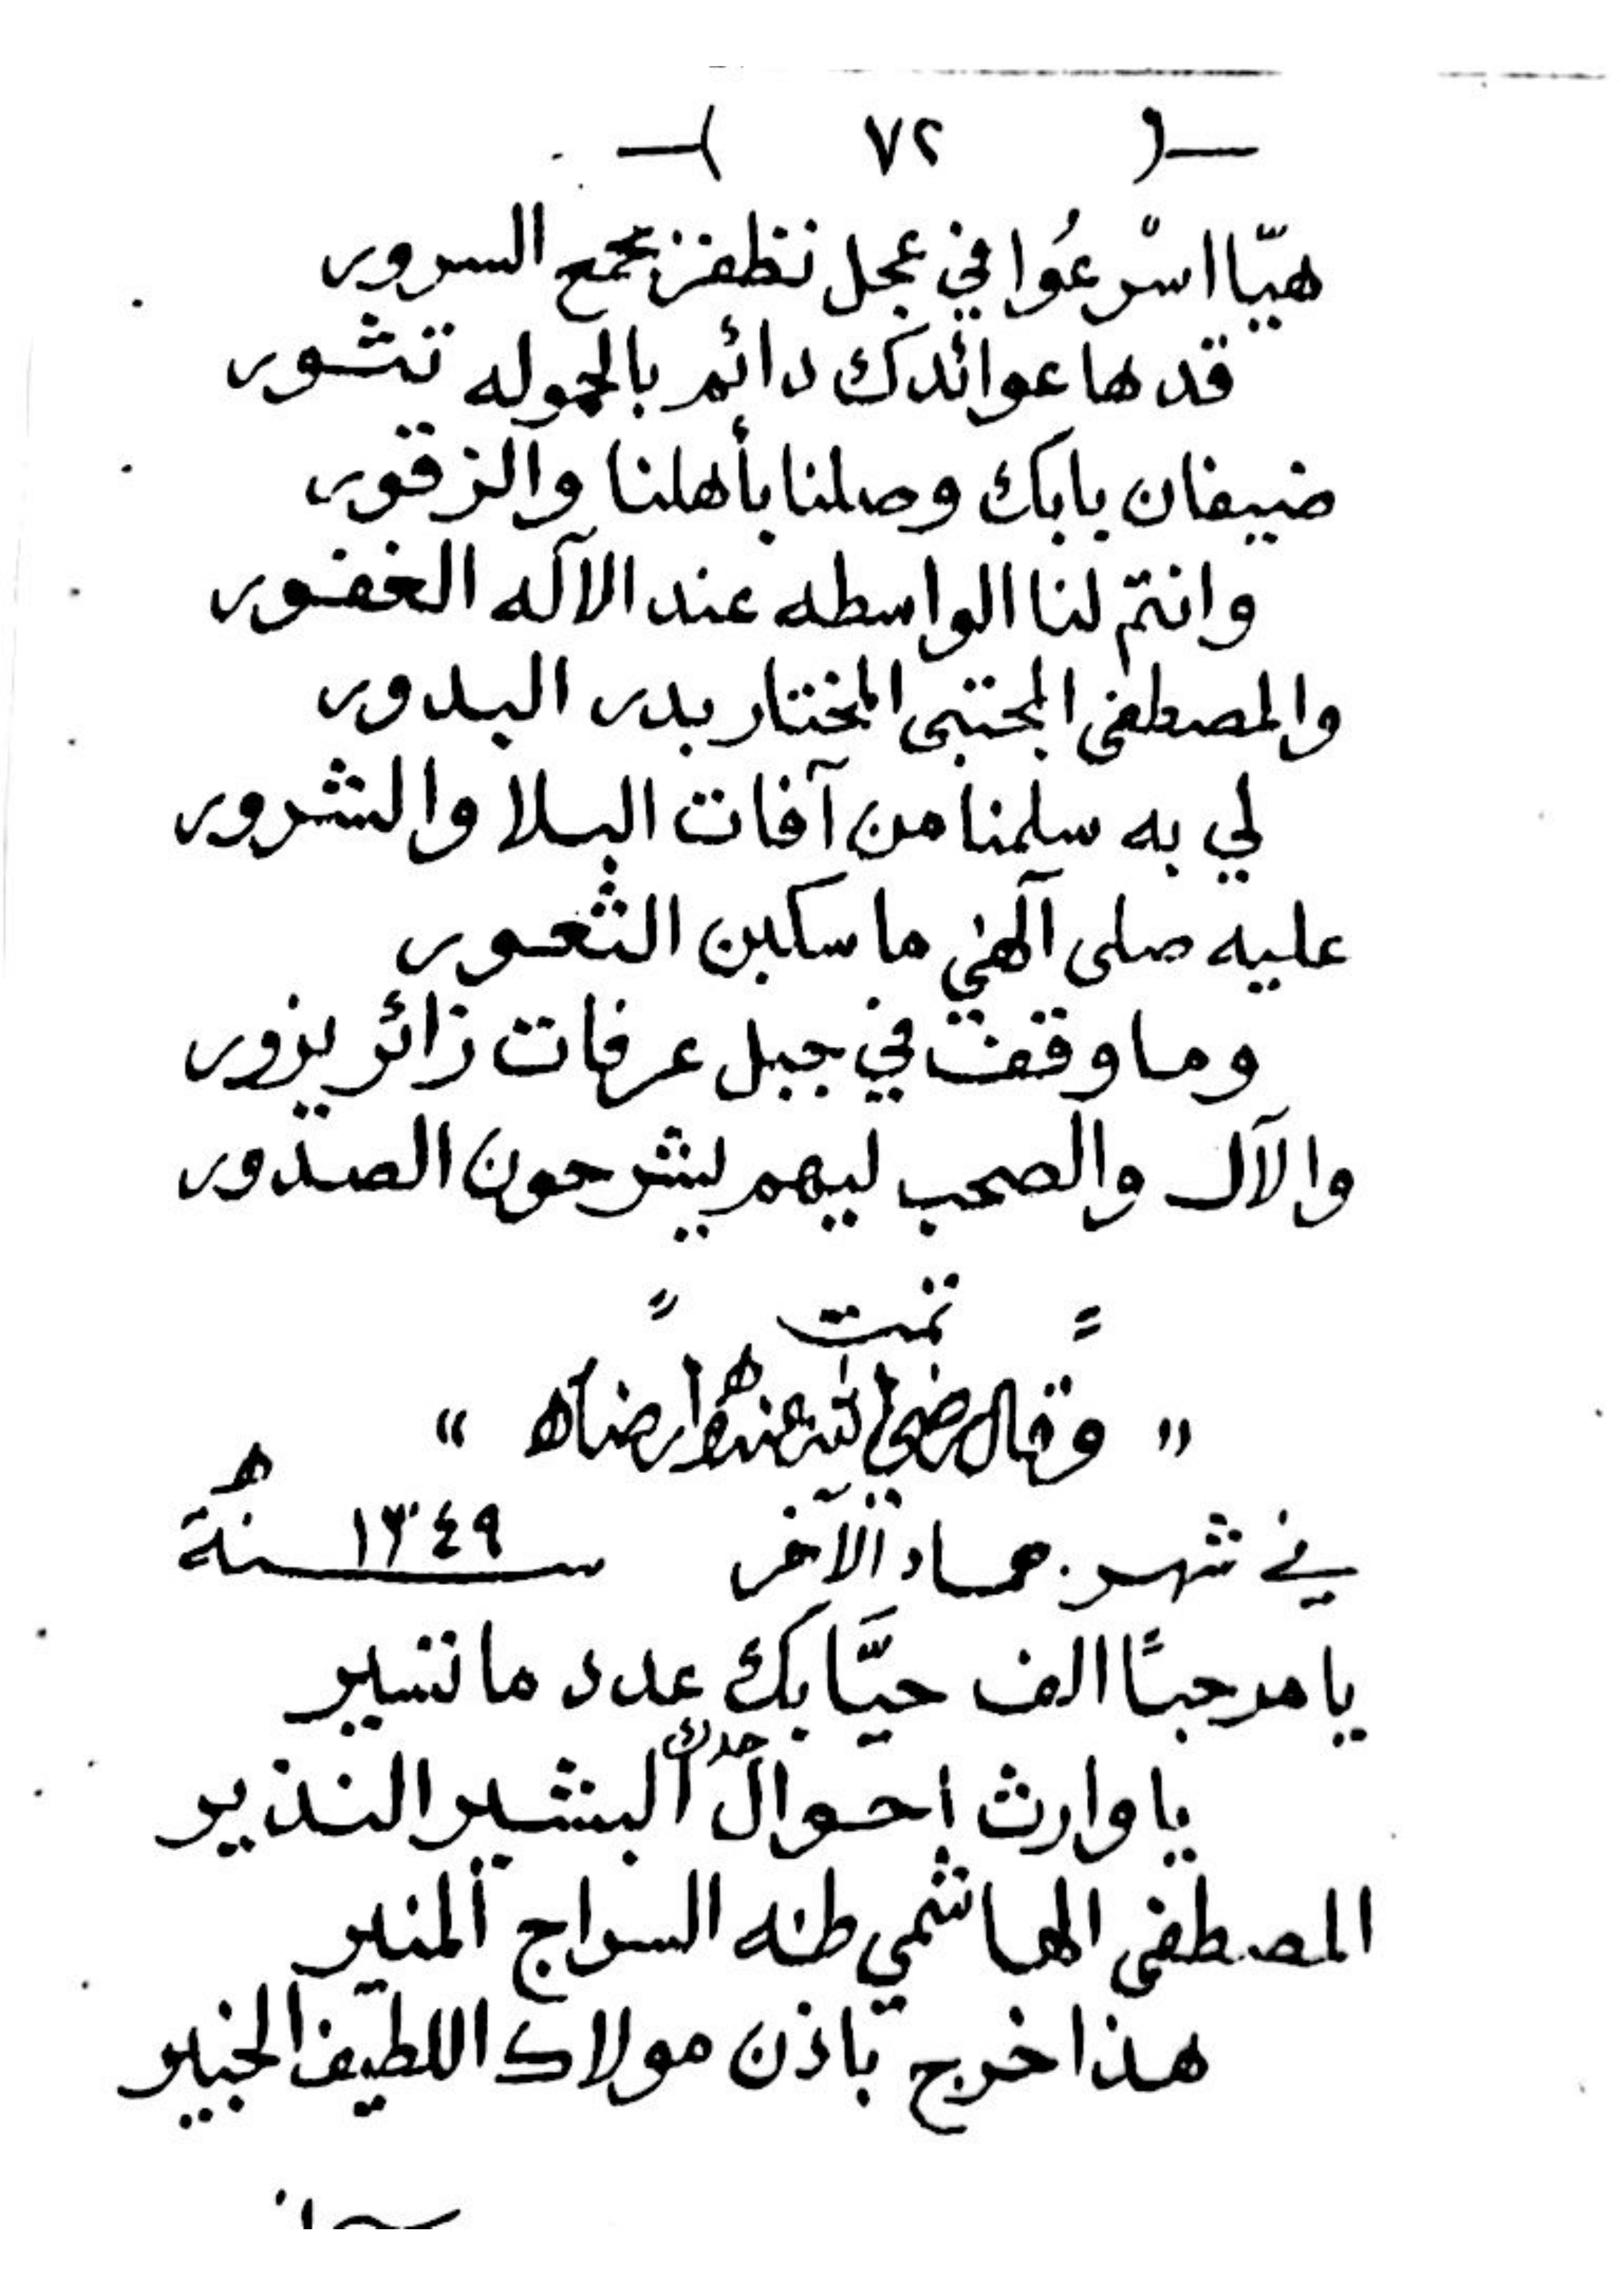 ( ٧٢ )
هيّا اسْرعُوا في عجل نظفر بجمع السرور
قد ها عوائدك دائم بالحموله تثور
ضيفان بابك وصلنا بأهلنا والزقور
وانتم لنا الواسطه عند الآله الغفور
والمصطفى المجتبى المختار بدر البدور
لي به سلمنا من آفات البلا والشرور
عليه صلى آلهي ما سكبن الثعور
وما وقفت في جبل عرفات زائر يزور
والآل والصحب ليهم يشرحون الصدور
" تمت "
" وقال رضي الله عنه وارضاه "
في شهر جماد الآخر سنة ١٣٤٩ هـ
يا مرحبًا الف حيَّا بك عدد ما تسير
يا وارث احوال جدك البشير النذير
المصطفى الهاشمي طه السراج المنير
هذا خرج باذن مولاك اللطيف الخبير